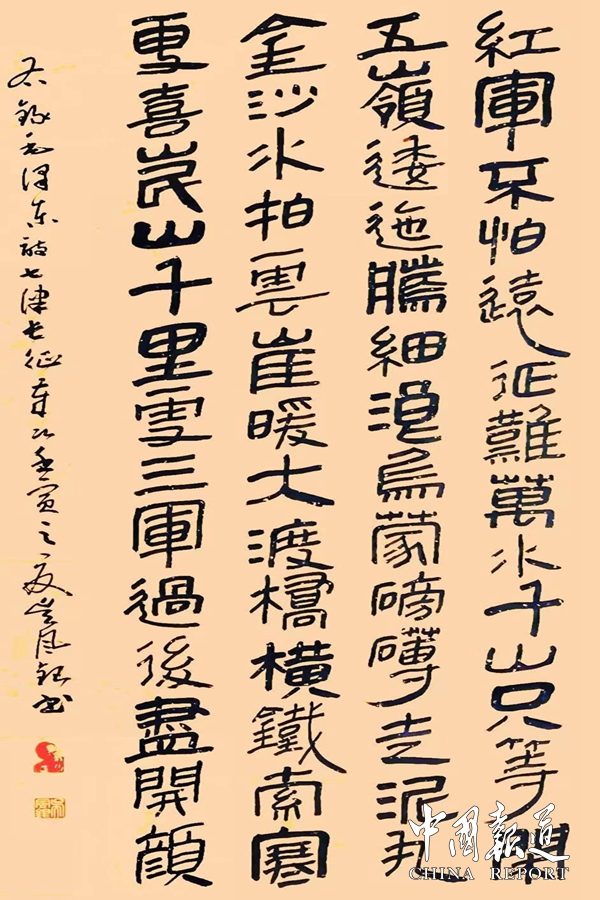 紅軍不怕遠征難萬水千山只等閑
五嶺逶迤騰細浪烏蒙磅礴走泥丸
金沙水拍雲崖暖大渡橋橫鐵索寒
更喜岷山千里雪三軍過後盡開顏
右錄毛澤东詩七律长征壬寅之夏书
中國報道
CHINA REPORT